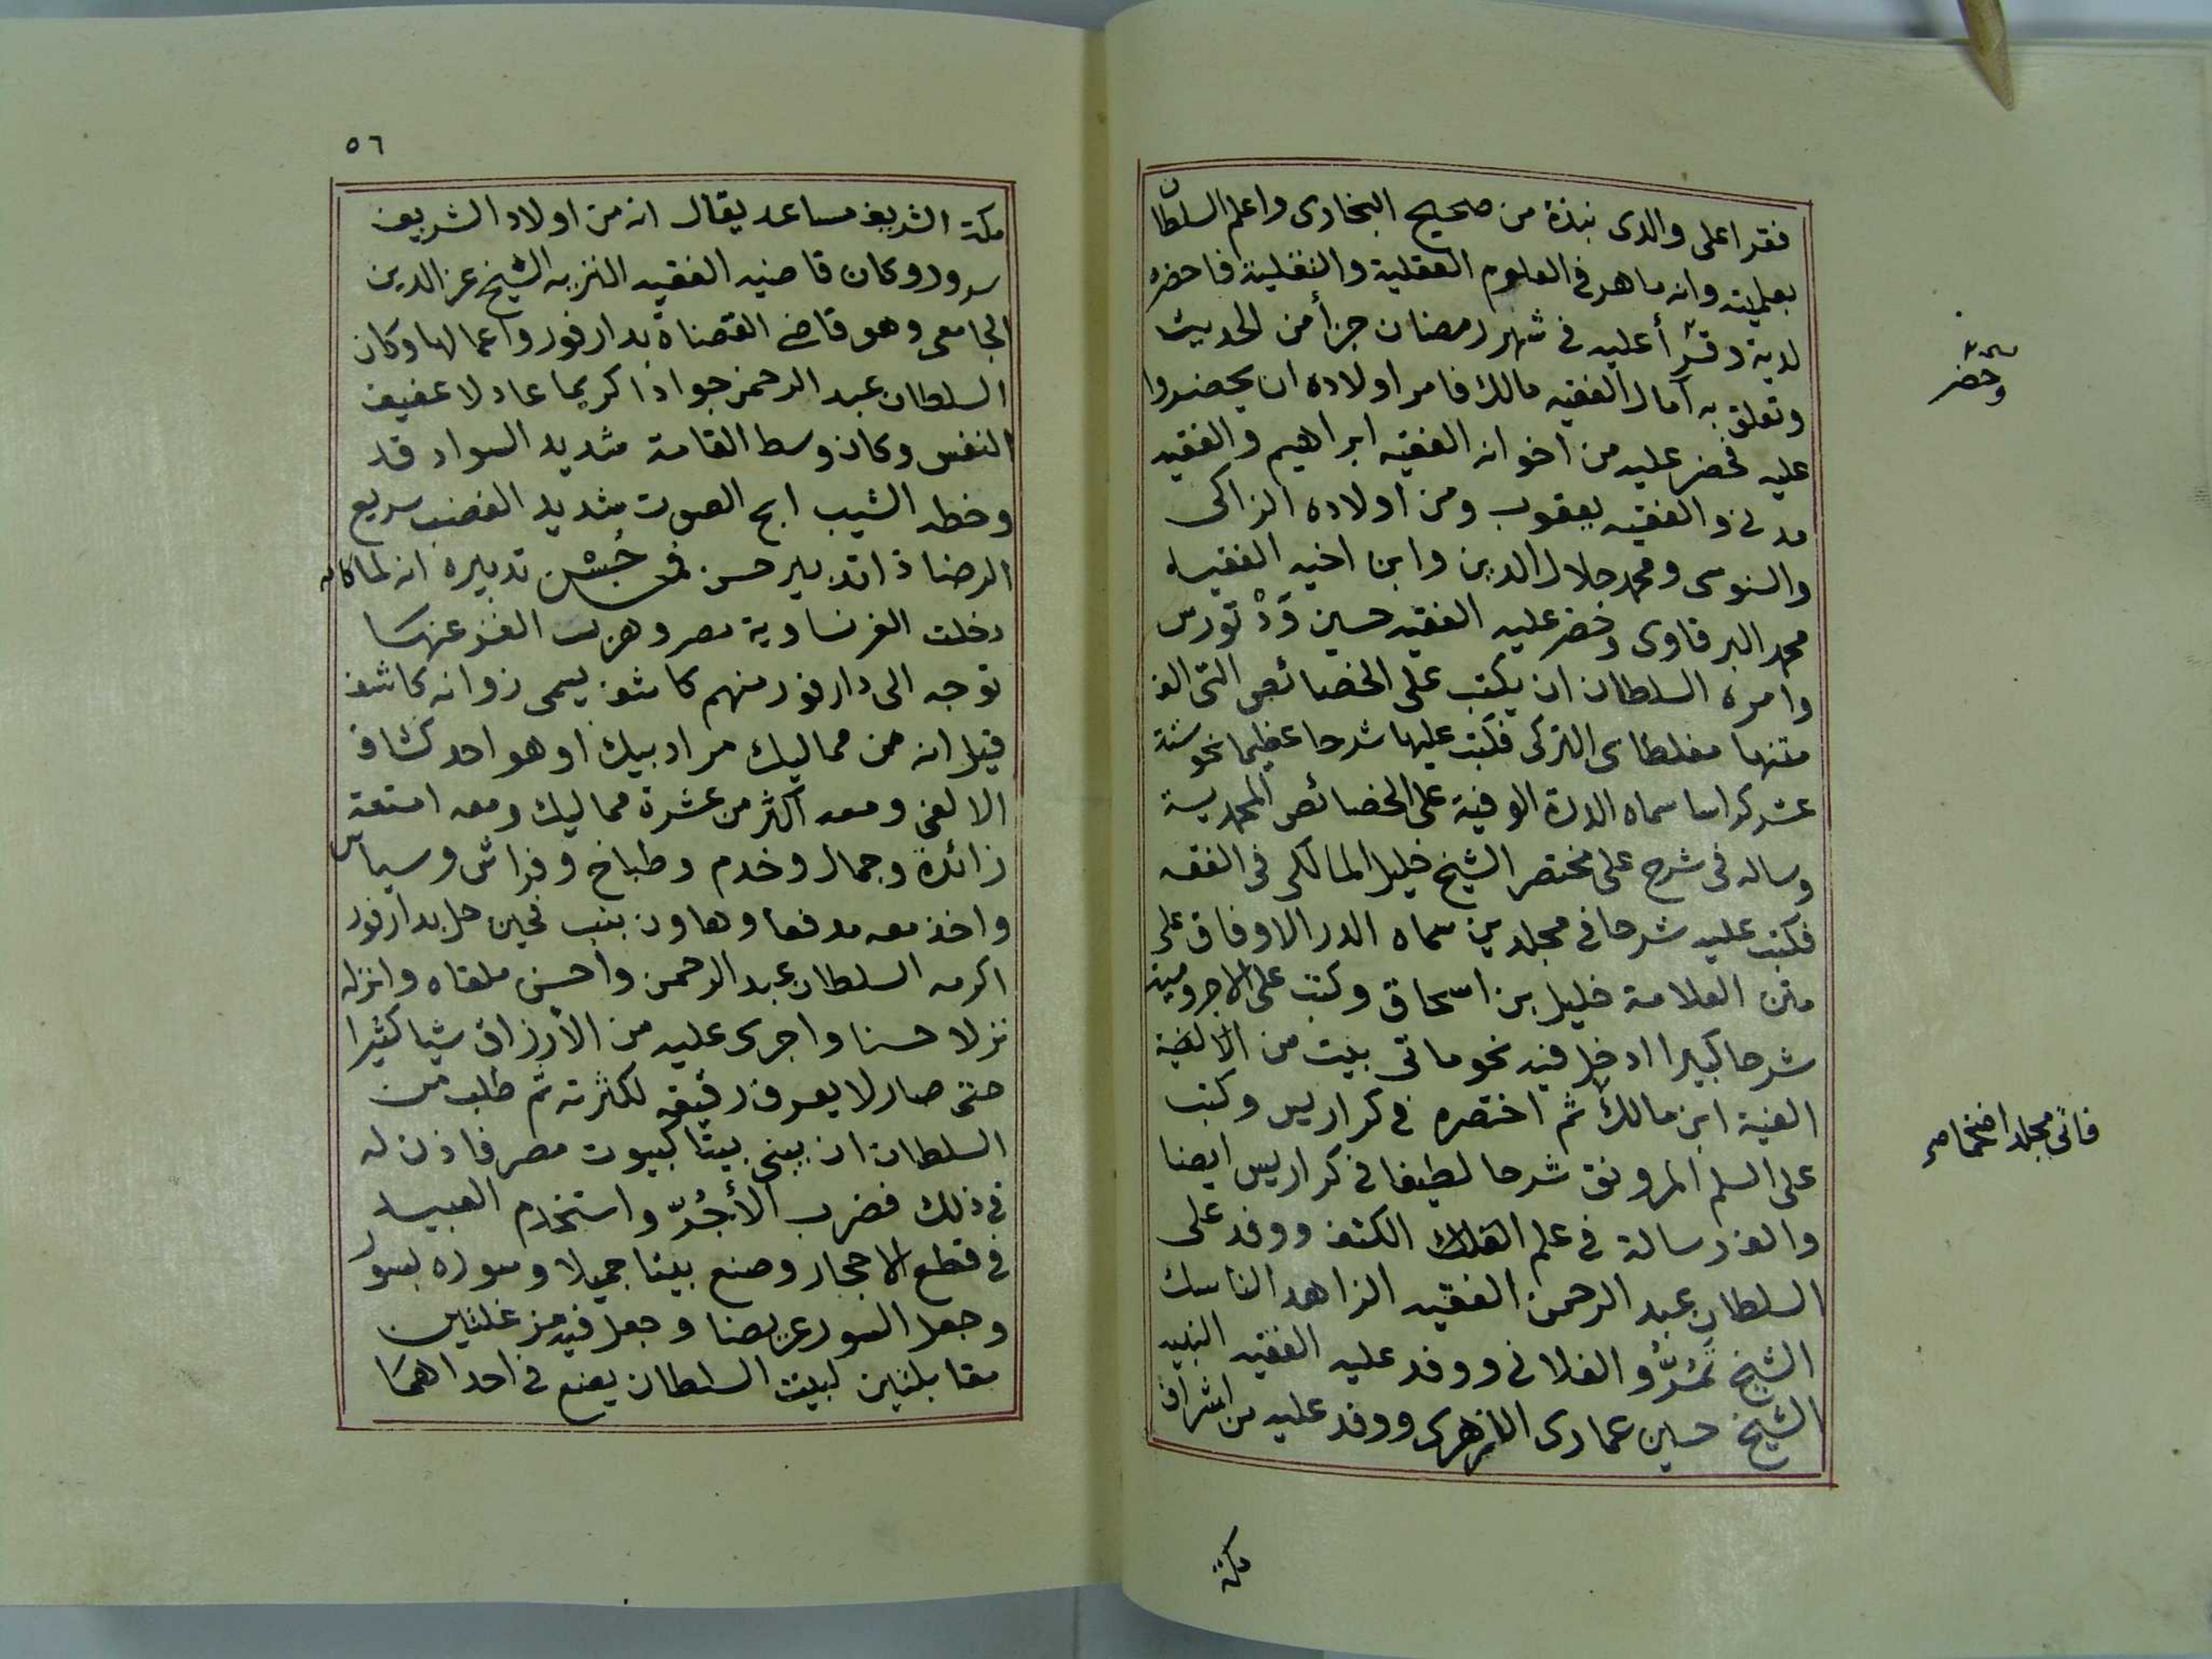 فقرا على والدى نبذة من صحيح البخارى واعلم السلطان
بعلميته وانه ماهر فى العلوم العقلية والنقلية فاحضره
لديه وقرأ عليه فى شهر رمضان جزأ من الحديث
وتعلق به آمال الفقيه مالك فامر اولاده ان يحضروا
عليه فحضر عليه من اخوانه الفقيه ابراهيم والفقيه
مدنى والفقيه يعقوب ومن اولاده الزاكى
والسنوسى ومحمد جلال الدين وابن اخيه الفقيه
محمد البرقاوى وحضر عليه الفقيه حسين وَدْ تورس
وامره السلطان ان يكتب على الخصائص التى الف
متنها مغلطاى التركى فكتب عليها شرحا عظيما نحو ستة
عشر كراسا سماه الدرة الوفية على الخصائص المحمدية
وساله فى شرح على مختصر الشيخ خليل المالكى فى الفقه
فكتب عليه شرحا فى مجلدين سماه الدر الاوفاق على
متن العلامة خليل بن اسحاق وكتب على الاجرومية
شرحا كبيرا ادخل فيه نحو ماتى بيت من الالفية
الفية ابن مالك ثم اختصره فى كراريس وكتب
على السلم المرونق شرحا لطيفا فى كراريس ايضا
والف رسالة فى علم الفلك الكشف ووفد على
السلطان عبد الرحمن الفقيه الزاهد الناسك
الشيخ تمُرُّو الفلانى ووفد عليه الفقيه النبيه
الشيخ حسين عمارى الازهرى ووفد عليه من اشراف
مكة
وحضر
فاتى مجلدا ضخما
٥٦
مكة الشريف مساعد يقال انه من اولاد الشريف
سرور وكان قاضيه الفقيه النزيه الشيخ عز الدين
الجامعى وهو قاضى القضاة بدارفور واعمالها وكان
السلطان عبد الرحمن جوادا كريما عادلا عفيف
النفس وكان وسط القامة شديد السواد قد
وخطه الشيب ابح الصوت شديد الغضب سريع
الرضا ذا تدبير حسن فمن حُسْن تدبيره انه لما كان
دخلت الفرنساوية مصر وهرب الغز عنها
توجه الى دارفور منهم كاشف يسمى زوانه كاشف
قيل انه من مماليك مراد بيك او هو احد كشاف
الالفى ومعه اكثر من عشرة مماليك ومعه امتعة
زائدة وجمال وخدم وطباخ وفراش وسياس
واخذ معه مدفعا وهاون بنب فحين حل بدارفور
اكرمه السلطان عبد الرحمن واحسن ملقاه وانزله
نزلا حسنا واجرى عليه من الأرزاق شيا كثيرا
حتى صار لا يعرف رقيقه لكثرته ثم طلب من
السلطان ان يبنى بيتا كبيوت مصر فاذن له
فى ذلك فضرب الأجُرّ واستخدم العبيد
فى قطع الاحجار وصنع بيتا جميلا وسوره بسور
وجعل السور عريضا وجعل فيه مزغلتين
مقابلتين لبيت السلطان يصنع فى احداهما